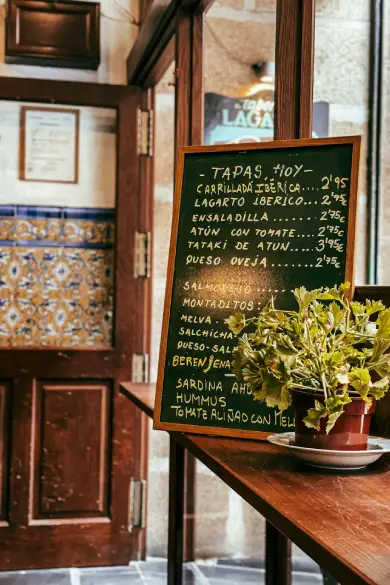 LAGAR
- TAPAS HOY -
CARRILLADA IBÉRICA.... 2'95
LAGARTO IBÉRICO... 2'75€
ENSALADILLA ....... 2'75€
ATÚN CON TOMATE..... 2'75€
TATAKI DE ATUN.... 3'95€
QUESO OVEJA ...... 2'75€
SALMOREJO
MONTADITOS:
MELVA
SALCHICHA
QUESO-SAL
BERENJENA
SARDINA AHU
HUMMUS
TOMATE ALIÑADO CON MEL